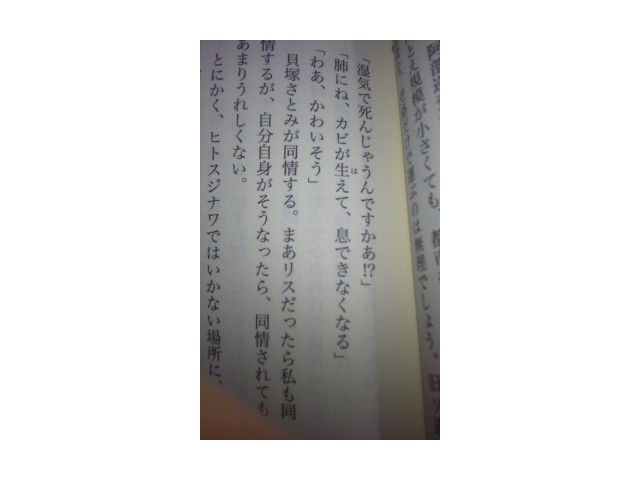 とえ規模が小さくても、都市
ぶのは無理でしょう。
「湿気で死んじゃうんですかあ!?」
「肺にね、カビが生えて、息できなくなる」
「わあ、かわいそう」
貝塚さとみが同情する。まあリスだったら私も同
情するが、自分自身がそうなったら、同情されても
あまりうれしくない。
とにかく、ヒトスジナワではいかない場所に、